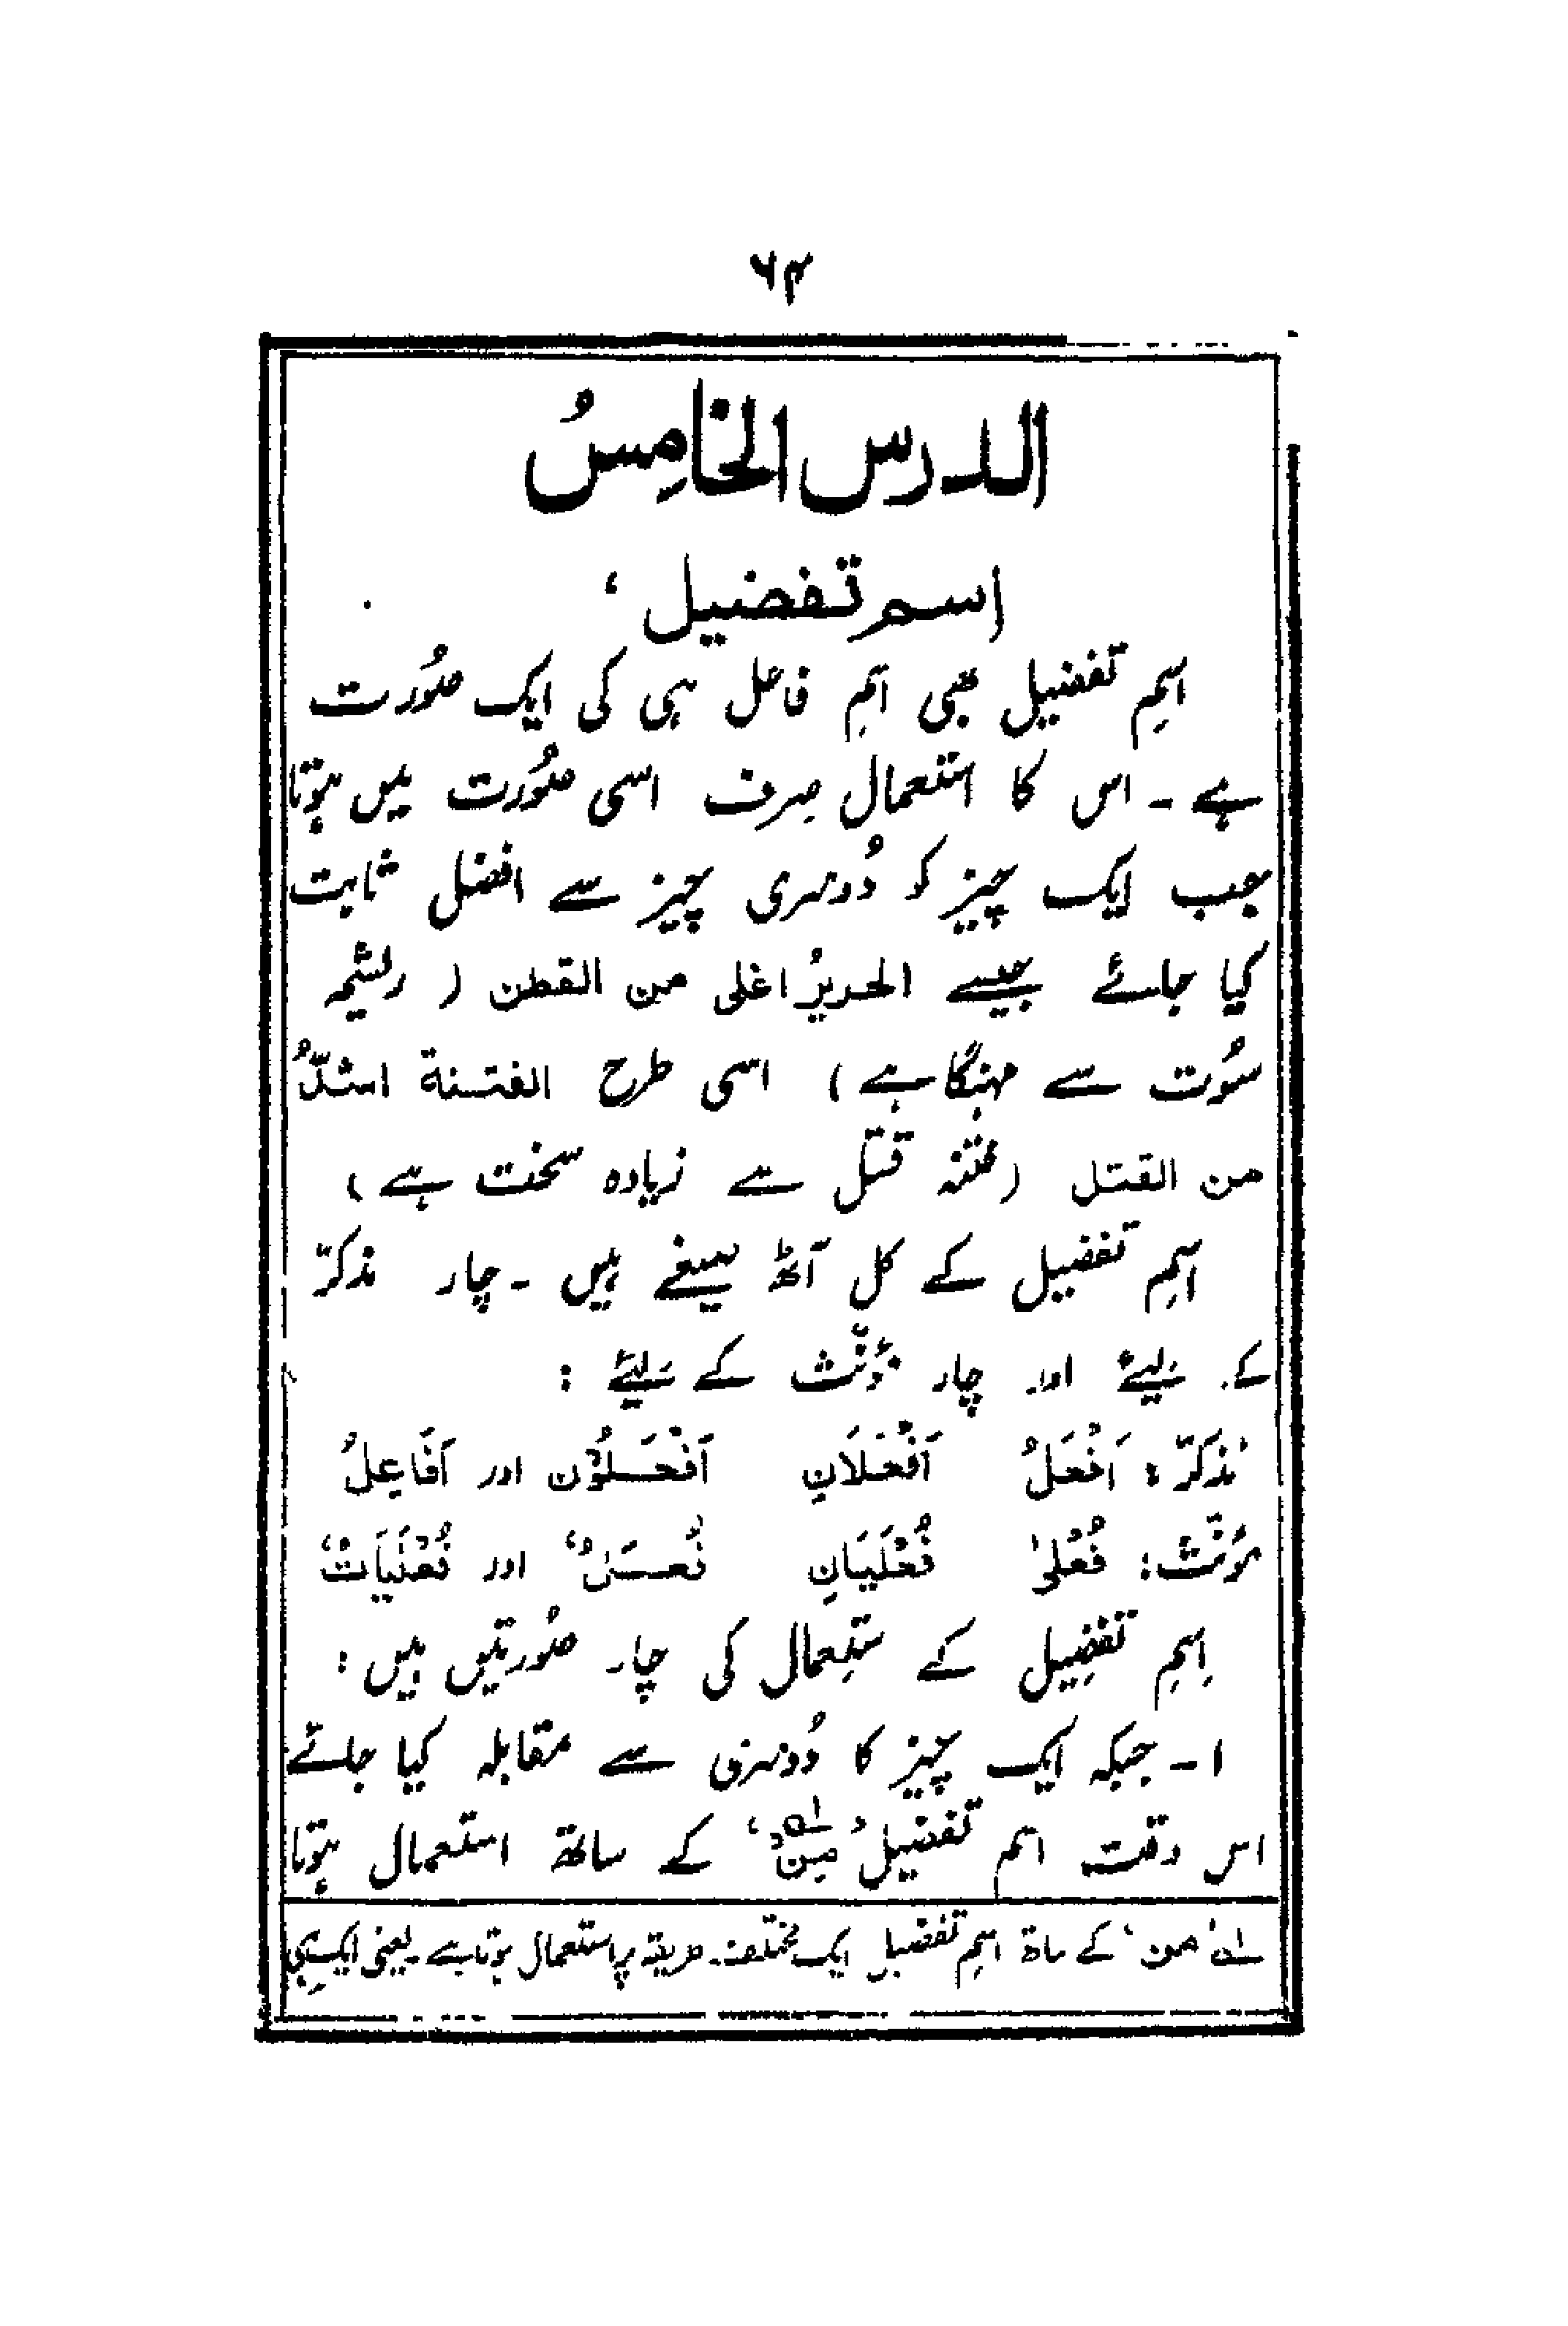 ۶۴
الدرس الخامِسُ
اسم تفضیل ‘
اسمِ تفضیل بھی اسمِ فاعل ہی کی ایک صُورت
ہے ۔ اس کا استعمال صِرف اسی صُورت میں ہوتا
جب ایک چیز کو دُوسری چیز سے افضل ثابت
کیا جائے جیسے الحریرُ اغلی من القطن ( ریشم
سُوت سے مہنگا ہے ) اسی طرح الفتنة اشدُّ
من القتل ( فتنہ قتل سے زیادہ سخت ہے )
اسمِ تفضیل کے کل آٹھ صیغے ہیں ۔ چار مذکرّ
کے لیئے اور چار مؤنّث کے لیئے :
مُذَکرّ : اَفْعَلُ اَفْعَلَانِ اَفْعَلُوْن اور اَفَاعِلُ
مؤنّث : فُعْلیٰ فُعْلَیَانِ فُعَلُ‘ اور فُعْلَیَاتٌ‘
اِسمِ تفضِیل کے ستِعمال کی چار صُورتیں ہیں :
۱ ۔ جبکہ ایک چیز کا دُوسری سے مقابلہ کیا جائے
اس وقت اسم تفضیل ’مِنْ‘ لہ کے ساتھ استعمال ہوتا
لہ ’من‘ کے ساتھ اسمِ تفضیل ایک مختلف طریقہ پر استعمال ہوتا ہے ۔ یعنی ایک ہی